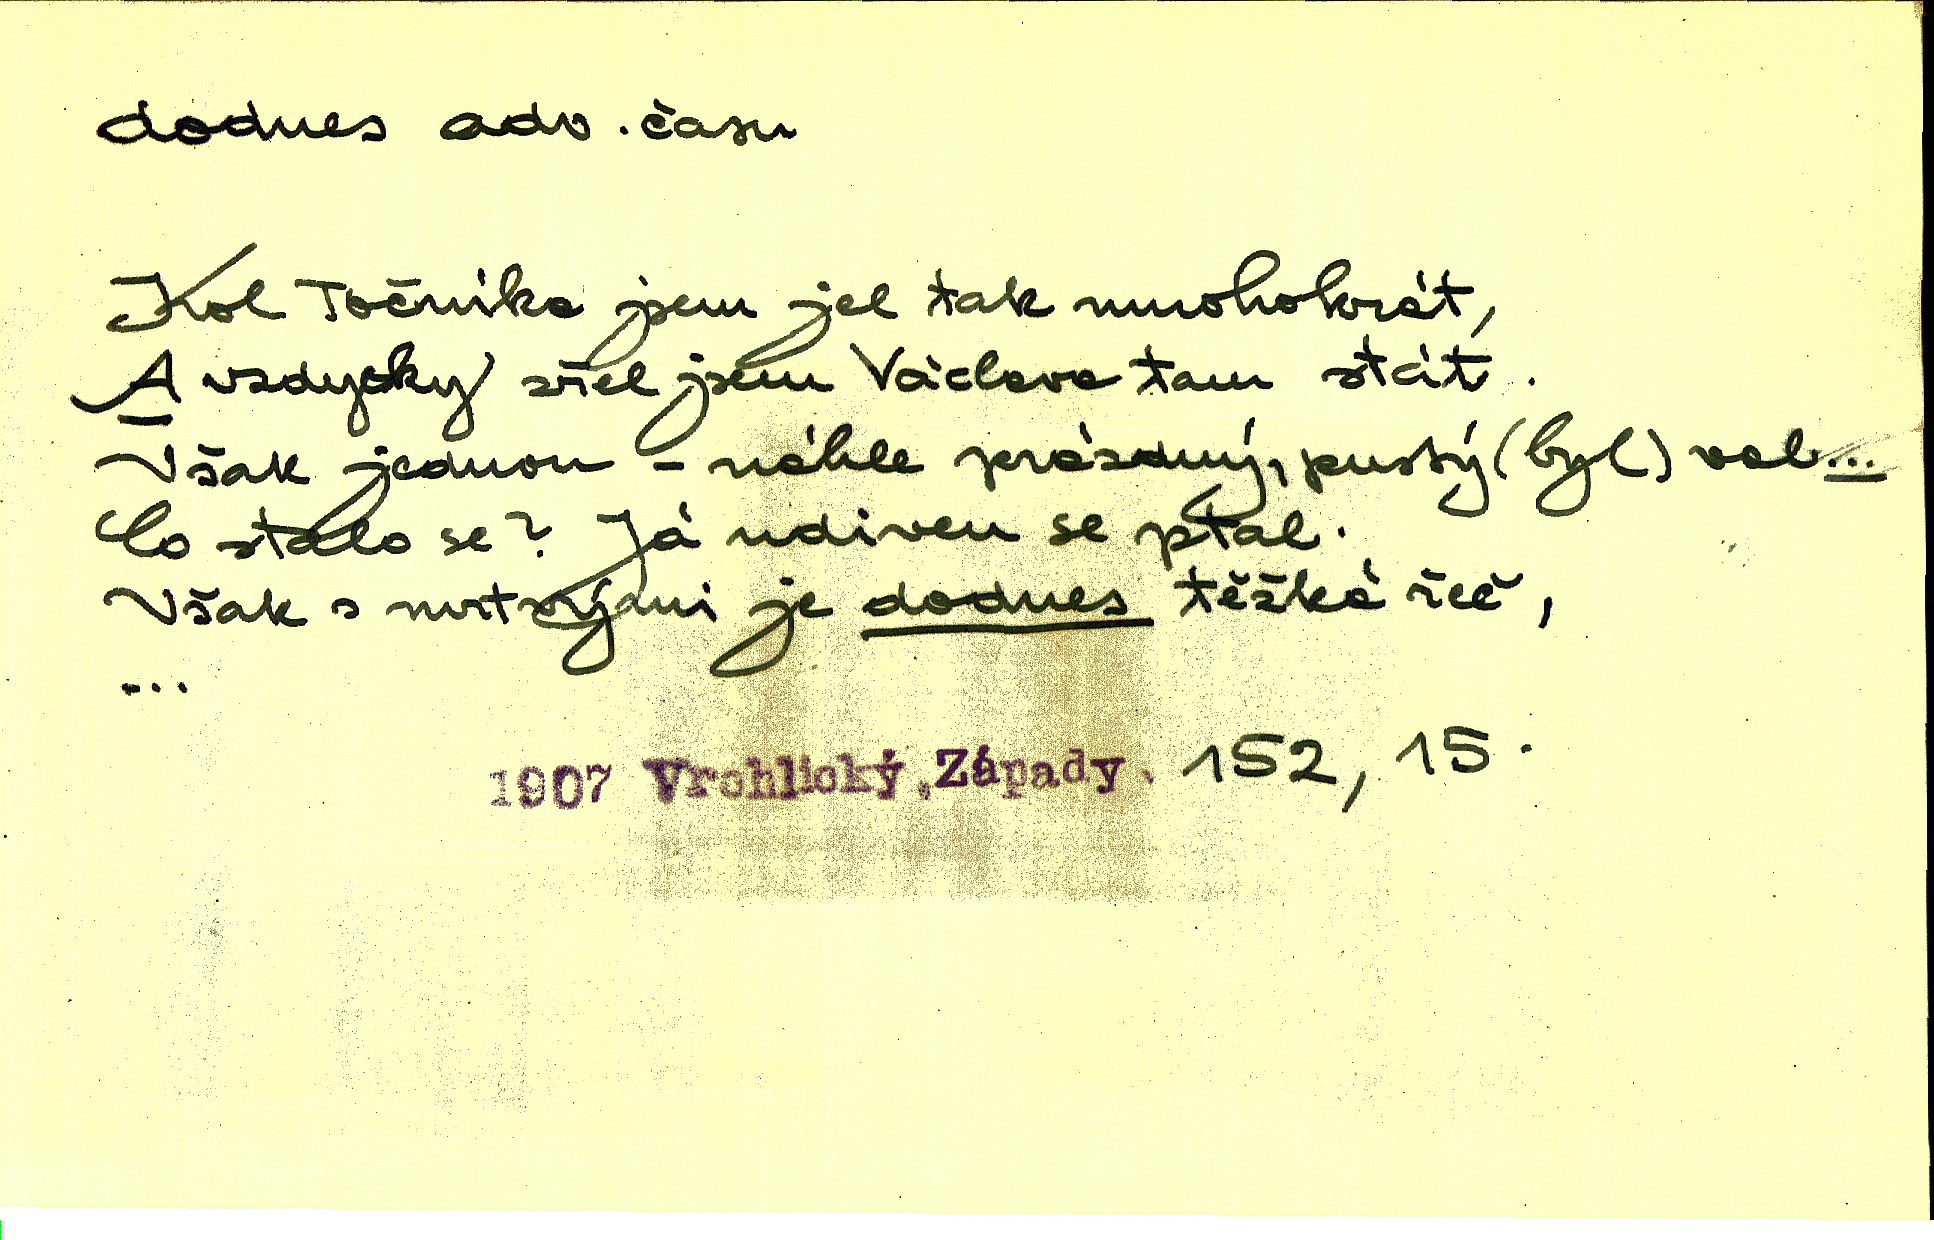 dodnes adv. času
Kol Točníka jsem jel tak mnohokrát,
A vzdycky zřel jsem Václava tam stát.
Však jednou - náhle prázdný, pustý (byl) val...
Co stalo se? Já udiven se ptal.
Však s mrtvými je dodnes těžká řeč,
...
1907 Vrchlický, Západy. 152, 15.